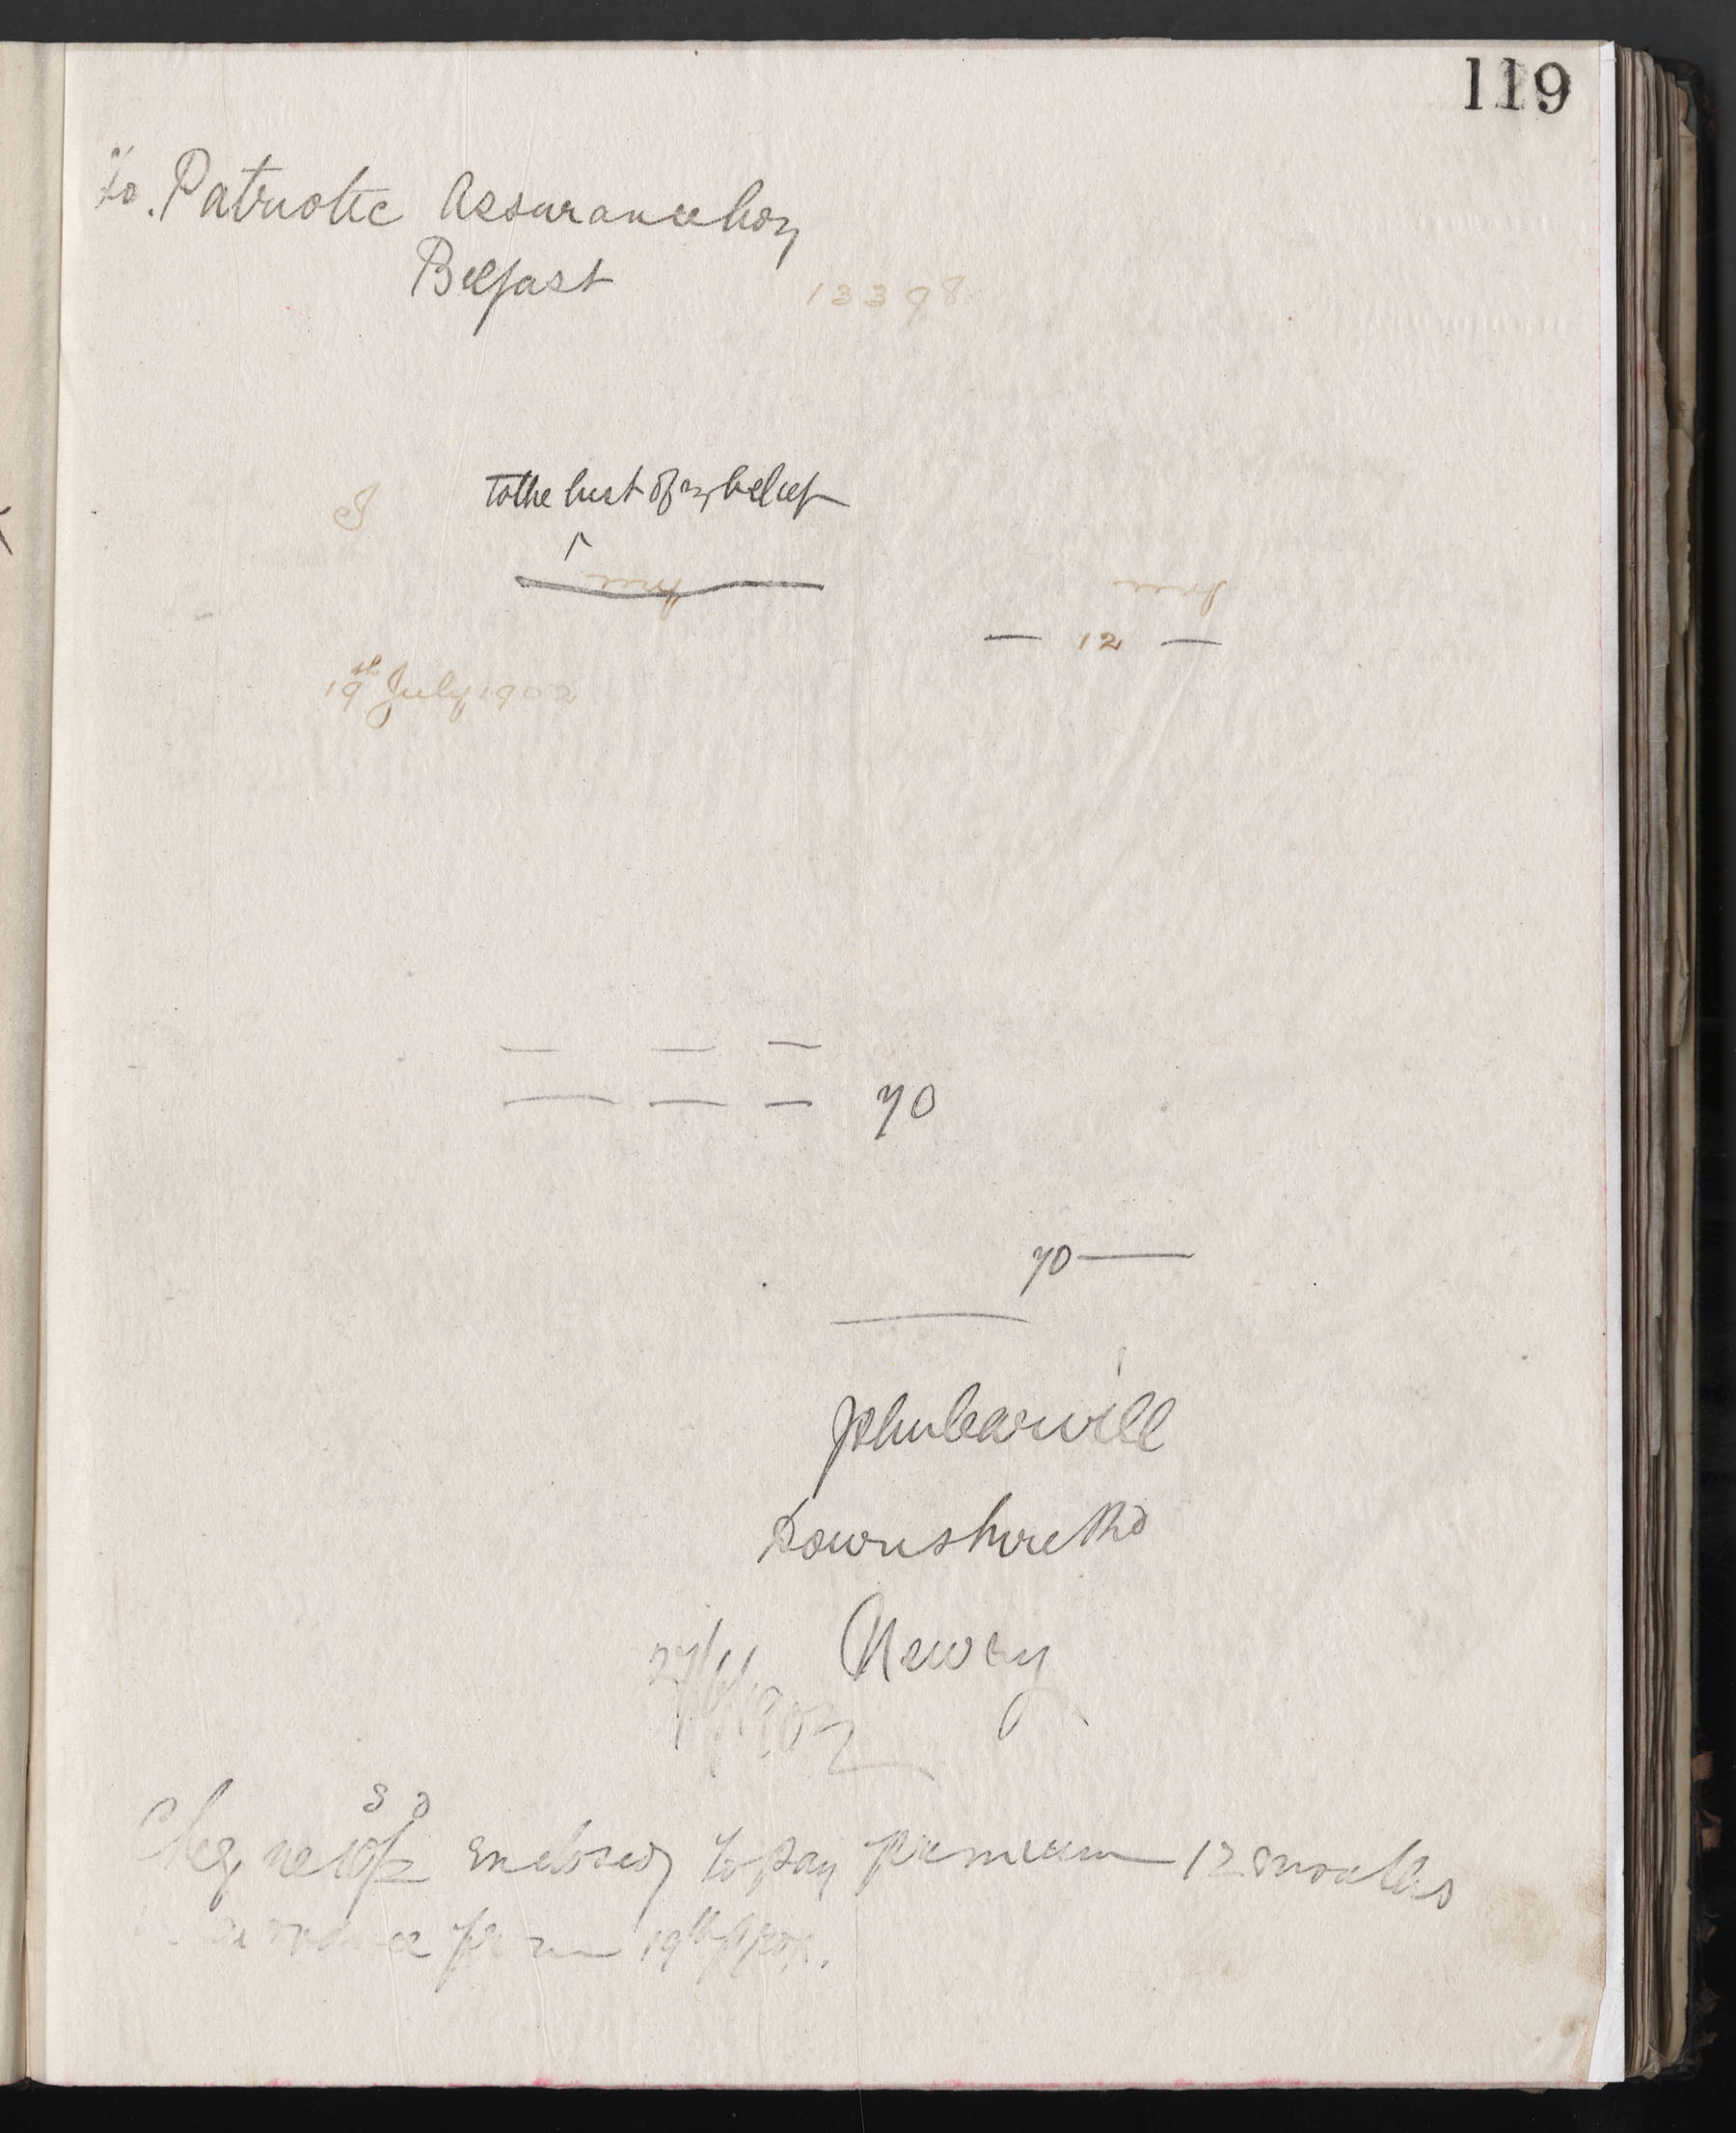 119
To. Patriotic Assurance Coy
Belfast
13398
I
to the best of my belief
free
free
— 12 —
19th July 1902
— — —
— — — 70
70 —
John Carvill
Downshire Rd
Newry
27/6/1902
s d
Cheque 10/2 enclosed to pay premium 12 months
from 19th